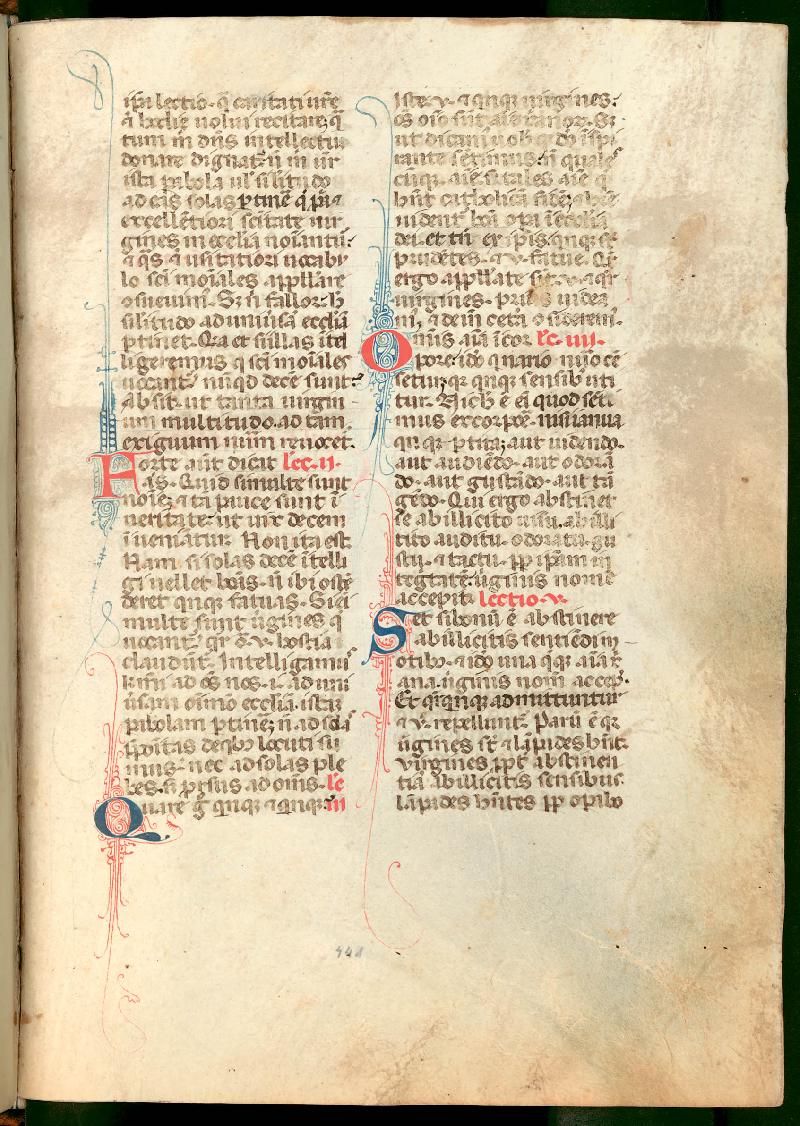 ip̄a lectio· q̄ caritati ur̄e
q̄ hodie uolui recitare· q̄
tum m̄ dn̄s intellectu
donare dignat᷑· n̄ m̄ ur̄
ista pabola ul' silitudo
ad eas solas ptinet q̄ ꝓp̄a
excellētiori sc̄itate uir
gines in eccl̄ia noīant᷑:
lo sc̄i moīales appll'are
ꝯsueuim̄. Sꝫ si fallor· h̄
silitudo ad uniūsā eccl̄ia
ptinet· Q̄a et si illas ītel
ligeremus q̄ sc̄i moīales
uocant᷑· nūqd decē sunt:
absit· ut tanta uirgin
um multitudo· ad tam
exiguum nūm reuocet᷑·
Forte aūt dicit lc̄c· ii·
as· Quid si multe sunt
noīe· ⁊ ta pauce sunt ī
ueritate· ut uix decem
īueniatur· Non ita est
Nam si solas decē ītelli
gi uellet bōas· n̄ ibi ostē
deret qnqꝫ fatuas· Si eī
multe sunt ūgines q̄
uocant᷑· qr̄ ꝯ· v· hostia
claudūt᷑· Intelligamus
kr̄mi ad os̄ nos· i· ad uni
ūsam oīno eccl̄ia· istā
pabolam ptinē· n̄ ad solas
ppositas deqb locuti su
mus· nec ad solas ple
bes· s; prsus ad om̄s· lc̄
Quare g̊ qnqꝫ ⁊ qnqꝫ iii
Iste· v· ⁊ qnqꝫ uirgines·
os̄ oīo sūt aīe xanor· Sꝫ
ut dicam uob· qd dō īspi
rante setimus· n̄ quale
cūqꝫ aīe· sꝫ tales aīe q̄
hn̄t catholicā fidē· ⁊ h̄re
uident᷑ bōa opa ī eccl̄ia
dei· et tn̄ ex ip̄is qnqꝫ st̄
prudētes· ⁊ v· fatue· Qr̄
ergo appll'ate sūt· v· ⁊ qr̄
uirgines· prius uidea
m̄· ⁊ deīn cetā ꝯsiderem̄·
Omīs aīa ī cor lc̄· iiii·
pore· idō qnario nūo cē
setur· qr qnqꝫ sensib uti
tur· Nich' ē ei quod seti
mus ex corpoē· nisi ianua
qnqꝫ ptita· aut uidendo·
aut audiēdo· aut odorā
do· aut gustādo· aut tā
gēdo· Qui ergo abstinet
se ab illicito uisu· ab illi
cito auditu· odoratu· gu
stu· ⁊ tactu· pp ip̄am in
tegtatē· ūginis nomē
accepit· lectio· v·
Set si bonū ē abstinere
ab illicitis sentiēdi m
otib· ⁊ idō una qqꝫ aīa x̄
ana· ūginis nom̄ accep·
Et qr qnqꝫ admittuntur
⁊ v· repellunt᷑· Parū ē qr
ūgines st̄ ⁊ lāpides hn̄t·
Virgines ppt abstinen
tiā ab illicitis sensibus·
lāpides hn̄tes pp opib